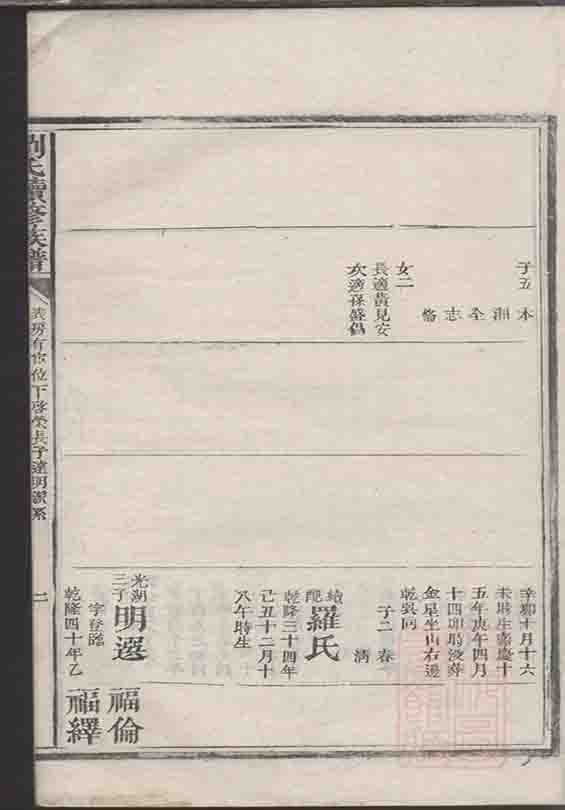 子五
本 湘 全 志 脩
女二
長適黃見安
次適孫盛倡
辛卯十月十六
未時生嘉慶十
五年庚午四月
十四卯時歿葬
金星坐山右邊
乾巽向
子二 春
清
續配羅氏
乾隆三十四年
己丑十二月十
八午時生
光湖三子明選
字登臨
乾隆四十年乙
福倫
福繹
劉氏續修族譜
房有 位下啓榮長子達明派系
二